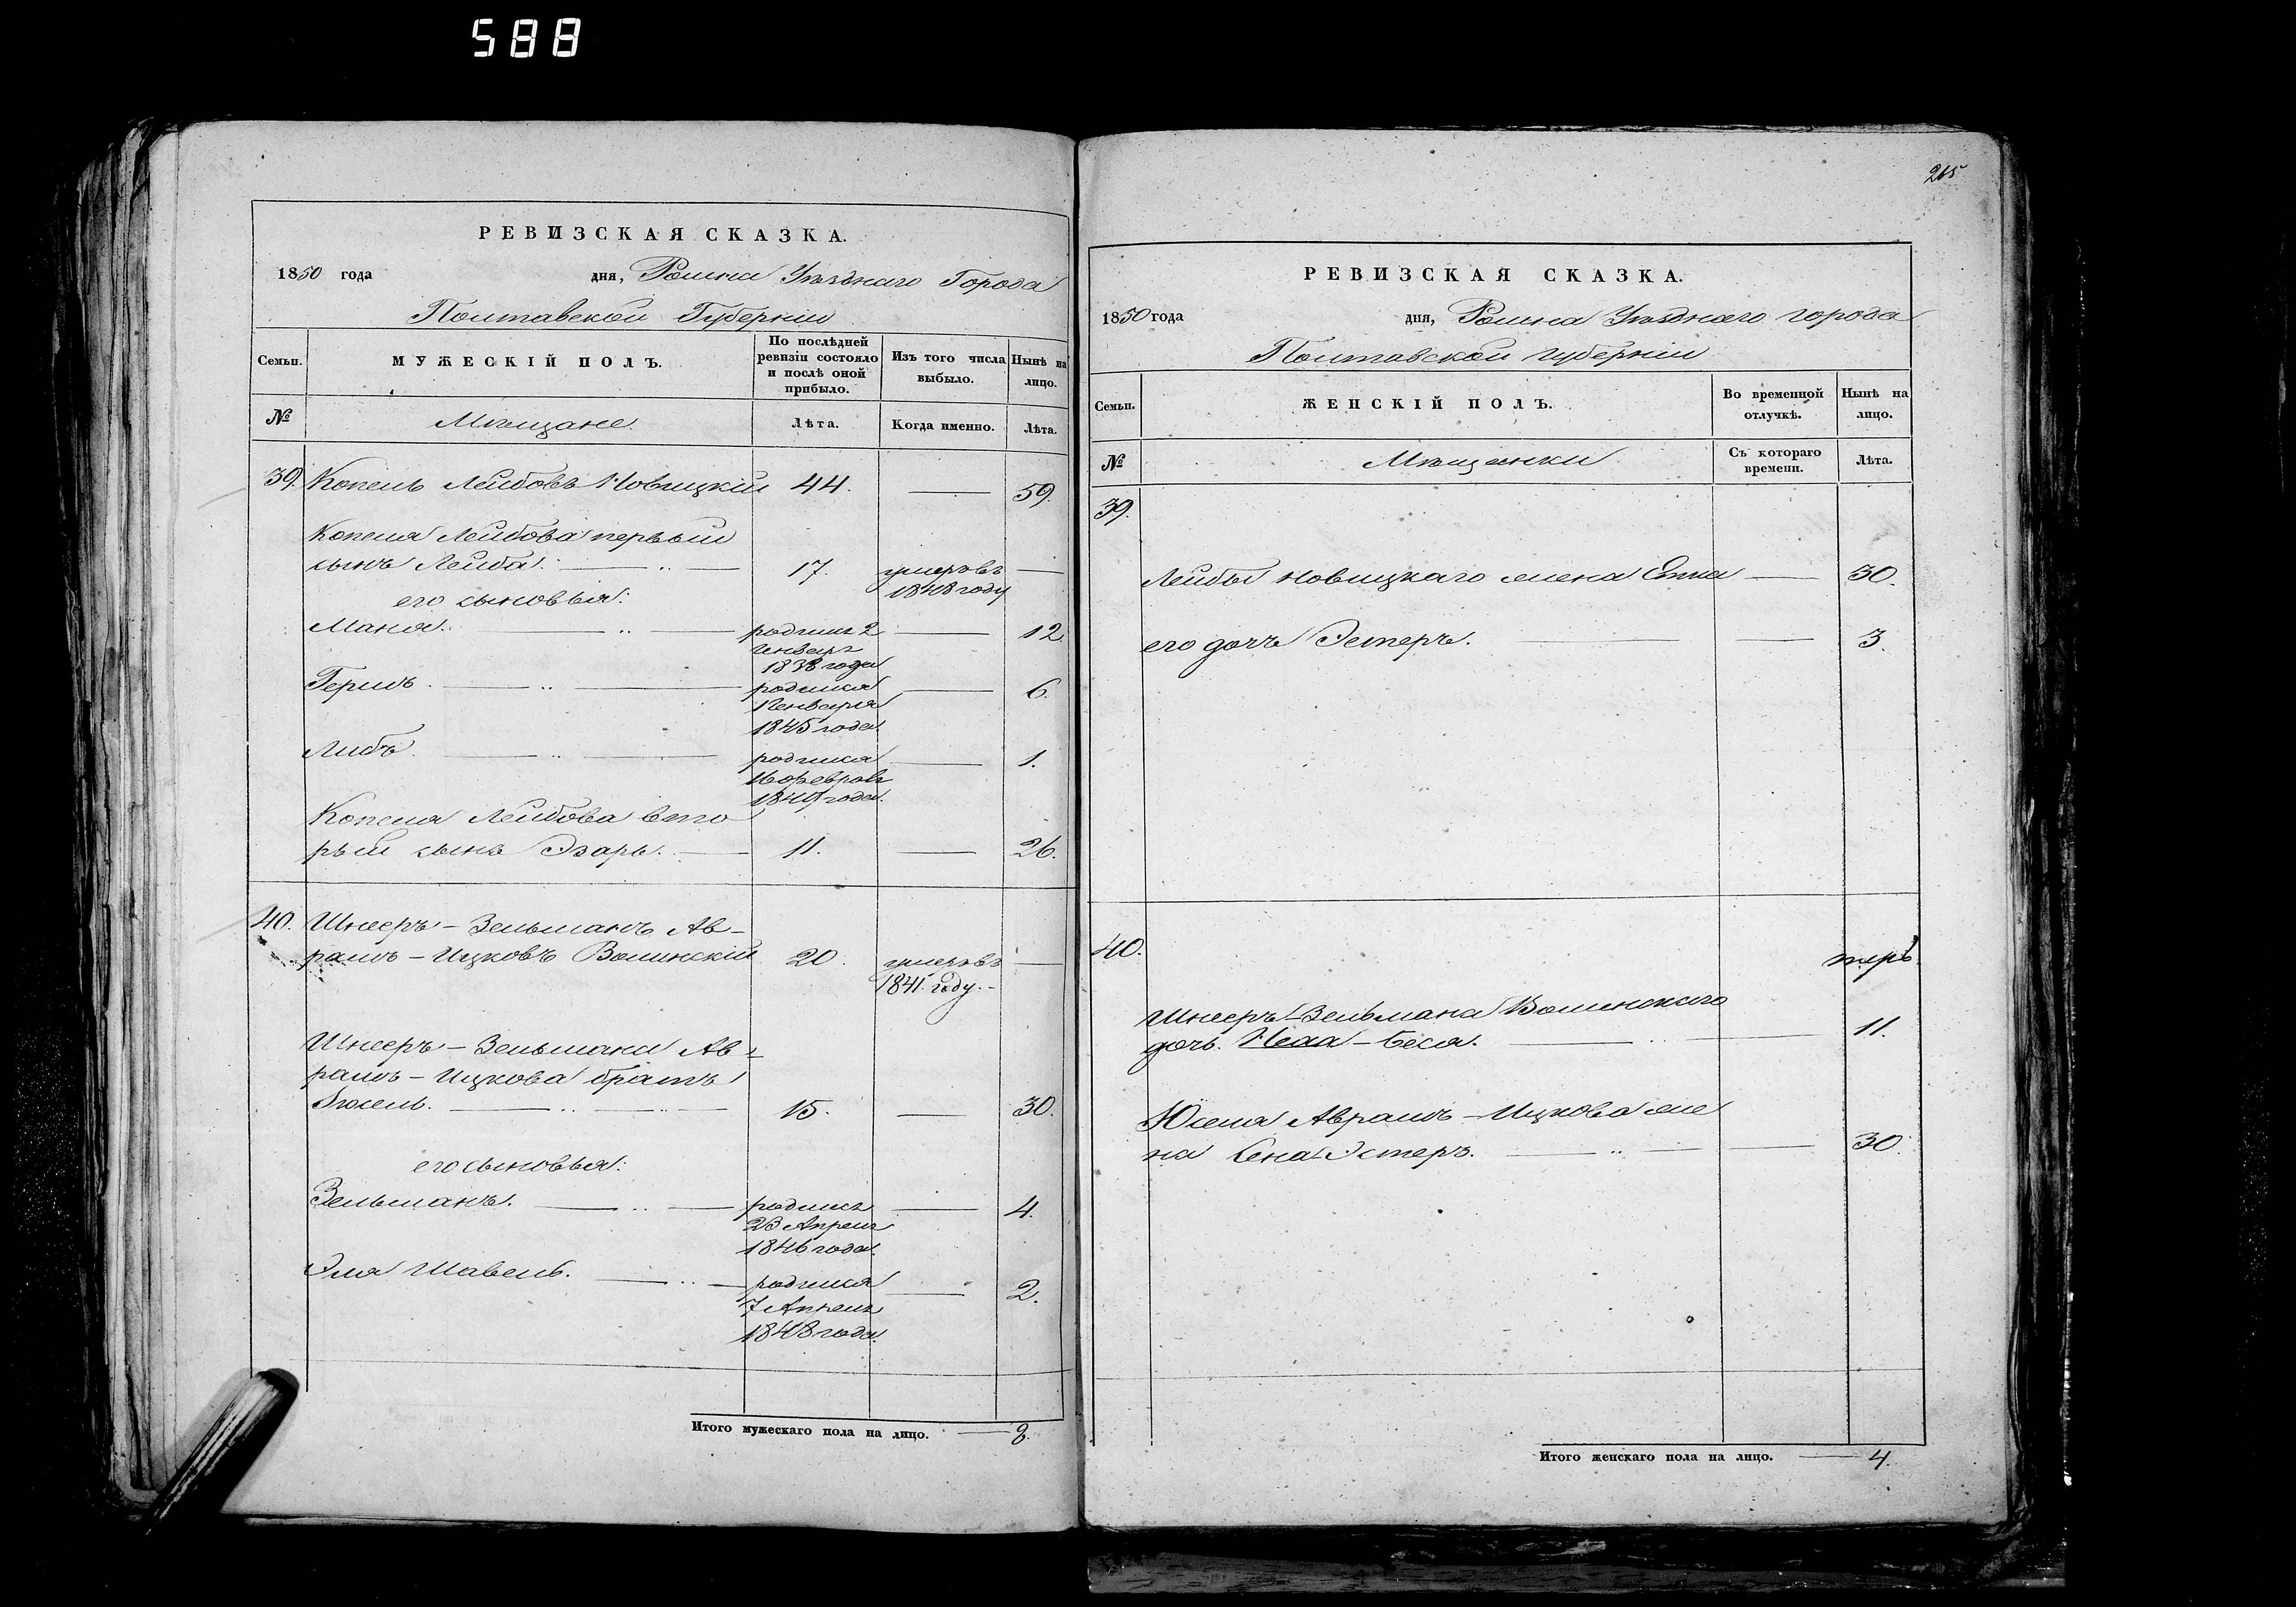 588
РЕВИЗСКАЯ СКАЗКА.
1850 года дня, Ромна Уѣзднаго Города
Полтавской Губерніи
Семьи.
МУЖЕСКІЙ ПОЛЪ.
По послѣдней ревизіи состояло и послѣ оной прибыло.
Изъ того числа выбыло.
Нынѣ на лицо.
№ Мѣщане. Лѣта. Когда именно. Лѣта.
39. Копель Лейбовъ Новицкій 44. 59.
Копеля Лейбова первый
сынъ Лейба. 17. умеръ въ
1848 году
его сыновья:
Маня. родился 2 12
Генваря
1838 года
Гершъ. родился 6.
1 Генваря
1845 года.
Либъ родился 1.
16 Февраля
1849 года.
Копеля Лейбова вто
рый сынъ Эзаръ. 11. 26.
40. Шнееръ-Зельманъ Ав-
рамъ-Ицковъ 20. умеръ въ
1841 году.
Шнееръ-Зельмана Ав-
рамъ-Ицкова братъ
15. 30.
его сыновья:
Зельманъ. родился 4.
23 Апреля
1846 года.
Эля Шавель. родился 2.
7 Апреля
1848 года.
Итого мужескаго пола на лицо. 8.
265
РЕВИЗСКАЯ СКАЗКА.
1850 года дня, Ромна Уѣзднаго города
Полтавской губерніи
Семьи.
ЖЕНСКІЙ ПОЛЪ.
Во временной отлучкѣ.
Нынѣ на лицо.
№ Мѣщанки Съ котораго времени. Лѣта.
39.
Лейбы Новицкаго жена 30.
его дочь Эстеръ. 3.
40.
Шнееръ-Зельмана
дочь. Неха-Беся. 11.
Юселя Аврамъ-Ицкова же
на Сена-Эстеръ. 30.
Итого женскаго пола на лицо. 4.